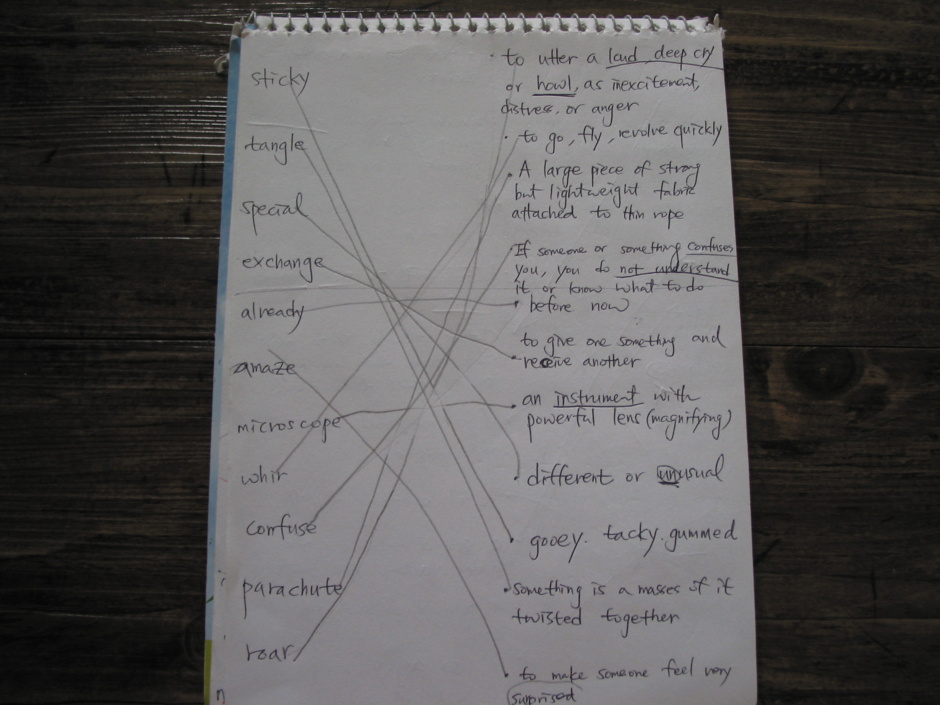 sticky
tangle
special
exchange
already
amaze
microscope
whir
confuse
parachute
roar
to utter a loud, deep cry
or howl, as inexcitement,
distress, or anger
to go, fly, revolve quickly
A large piece of strong
but lightweight fabric
attached to thin rope
If someone or something confuses
you, you do not understand
it or know what to do
before now
to give one something and
receive another
an instrument with
powerful lens (magnifying)
different or unusual
gooey. tacky. gummed
something is a masses of it
twisted together
to make someone feel very
surprised